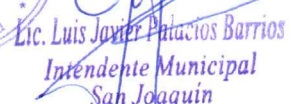 Lic. Luis Javier Palacios Barrios
Intendente Municipal
San Joaquín